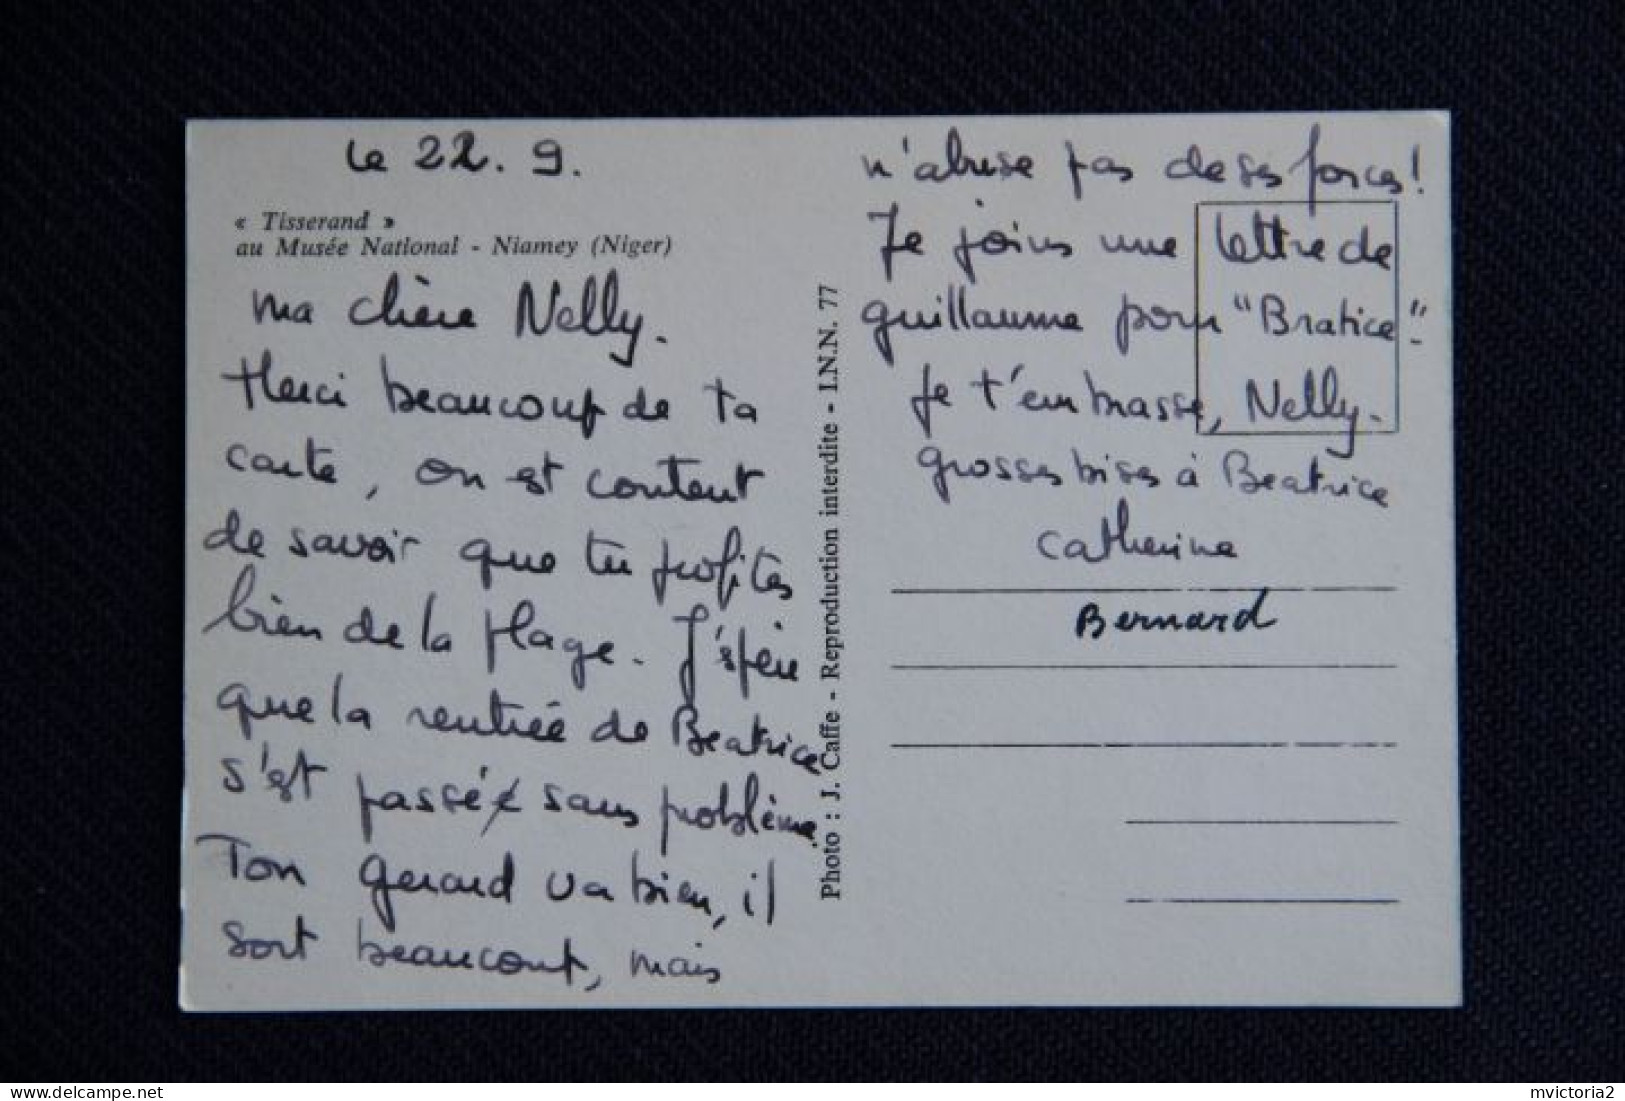 le 22.9.
« Tisserand »
au Musée National - Niamey (Niger)
ma chère Nelly.
Merci beaucoup de ta
carte, on est content
de savoir que tu profites
bien de la plage. J'espère
que la rentrée de Beatrice
s'est passée sans problème.
Ton Gerard va bien, il
sort beaucoup, mais
Photo : J. Caffe - Reproduction interdite - I.N.N. 77
n'abuse pas de ses forces!
Je joins une lettre de
guillaume pour "Bratice".
Je t'embrasse, Nelly.
grosses bises à Beatrice
Catherine
Bernard
delcampe.net
mvictoria2